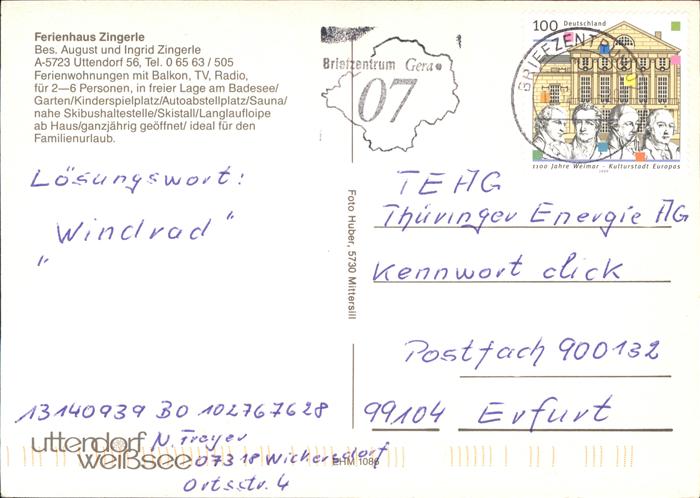 Ferienhaus Zingerle
Bes. August und Ingrid Zingerle
A-5723 Uttendorf 56, Tel. 0 65 63 / 505
Ferienwohnungen mit Balkon, TV, Radio,
für 2—6 Personen, in freier Lage am Badesee/
Garten/Kinderspielplatz/Autoabstellplatz/Sauna/
nahe Skibushaltestelle/Skistall/Langlaufloipe
ab Haus/ganzjährig geöffnet/ ideal für den
Familienurlaub.
Briefzentrum Gera
07
100 Deutschland
BRIEFZENTRUM
1100 Jahre Weimar - Kulturstadt Europas
1999
Lösungswort:
"Windrad"
Foto Huber, 5730 Mittersill
TEAG
Thüringer Energie AG
Kennwort click
Postfach 900132
99104 Erfurt
13140939 BO 102767628
N. Troyer
07318 Wickersdorf
Ortsstr. 4
uttendorf
weißsee
EHM 1086